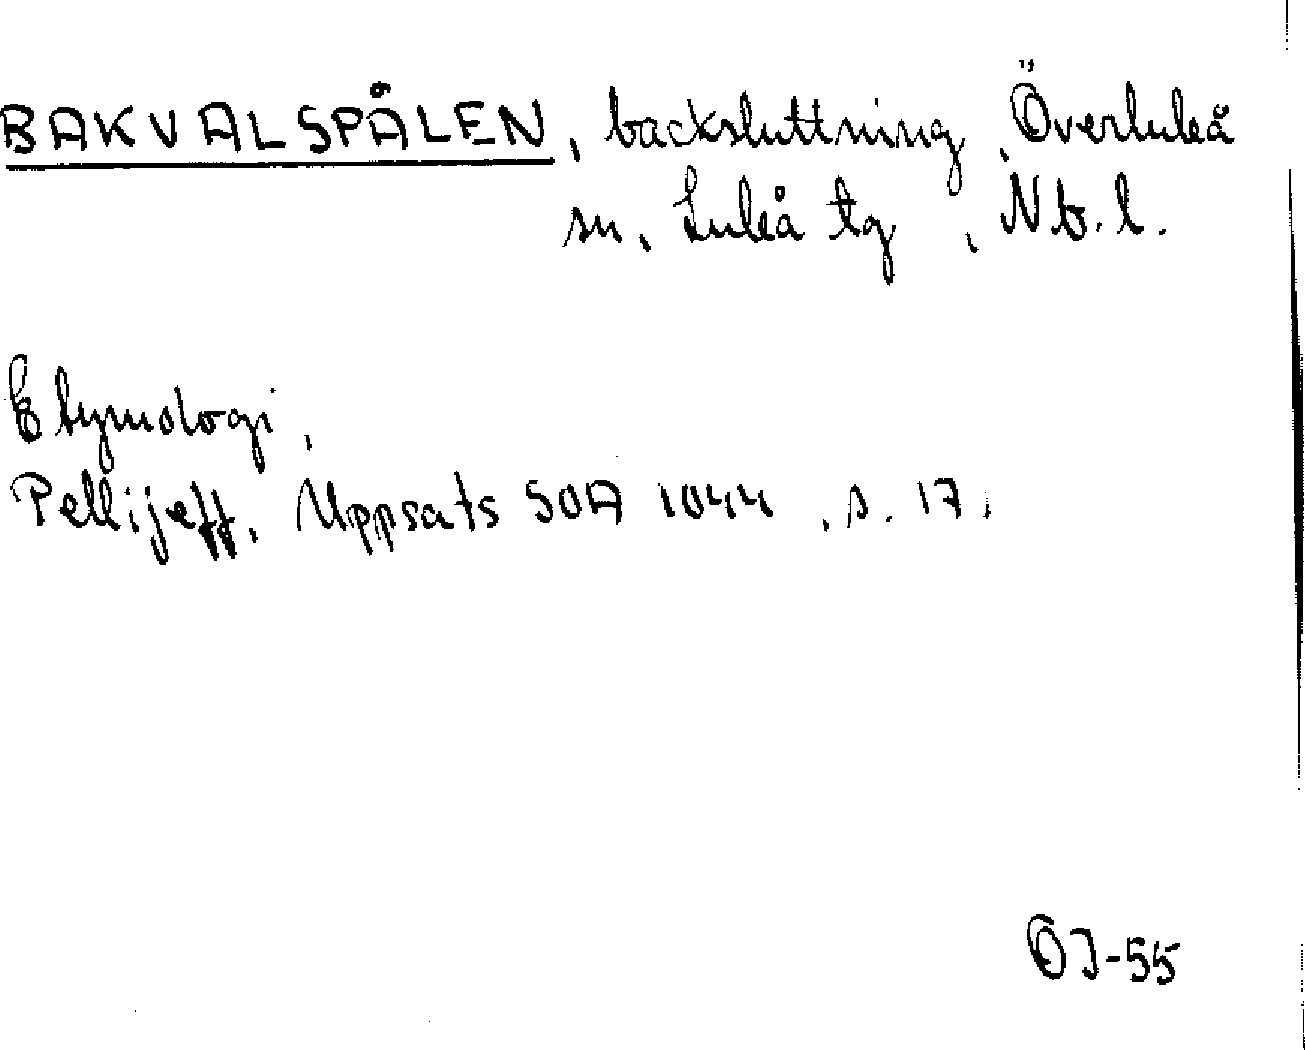 BAKVALSPÅLEN, backsluttning, Överluleå
sn, Luleå tg, Nb. l.
Etymologi,
Pellijeff, Uppsats SOA 1044, s. 17.
OJ-55